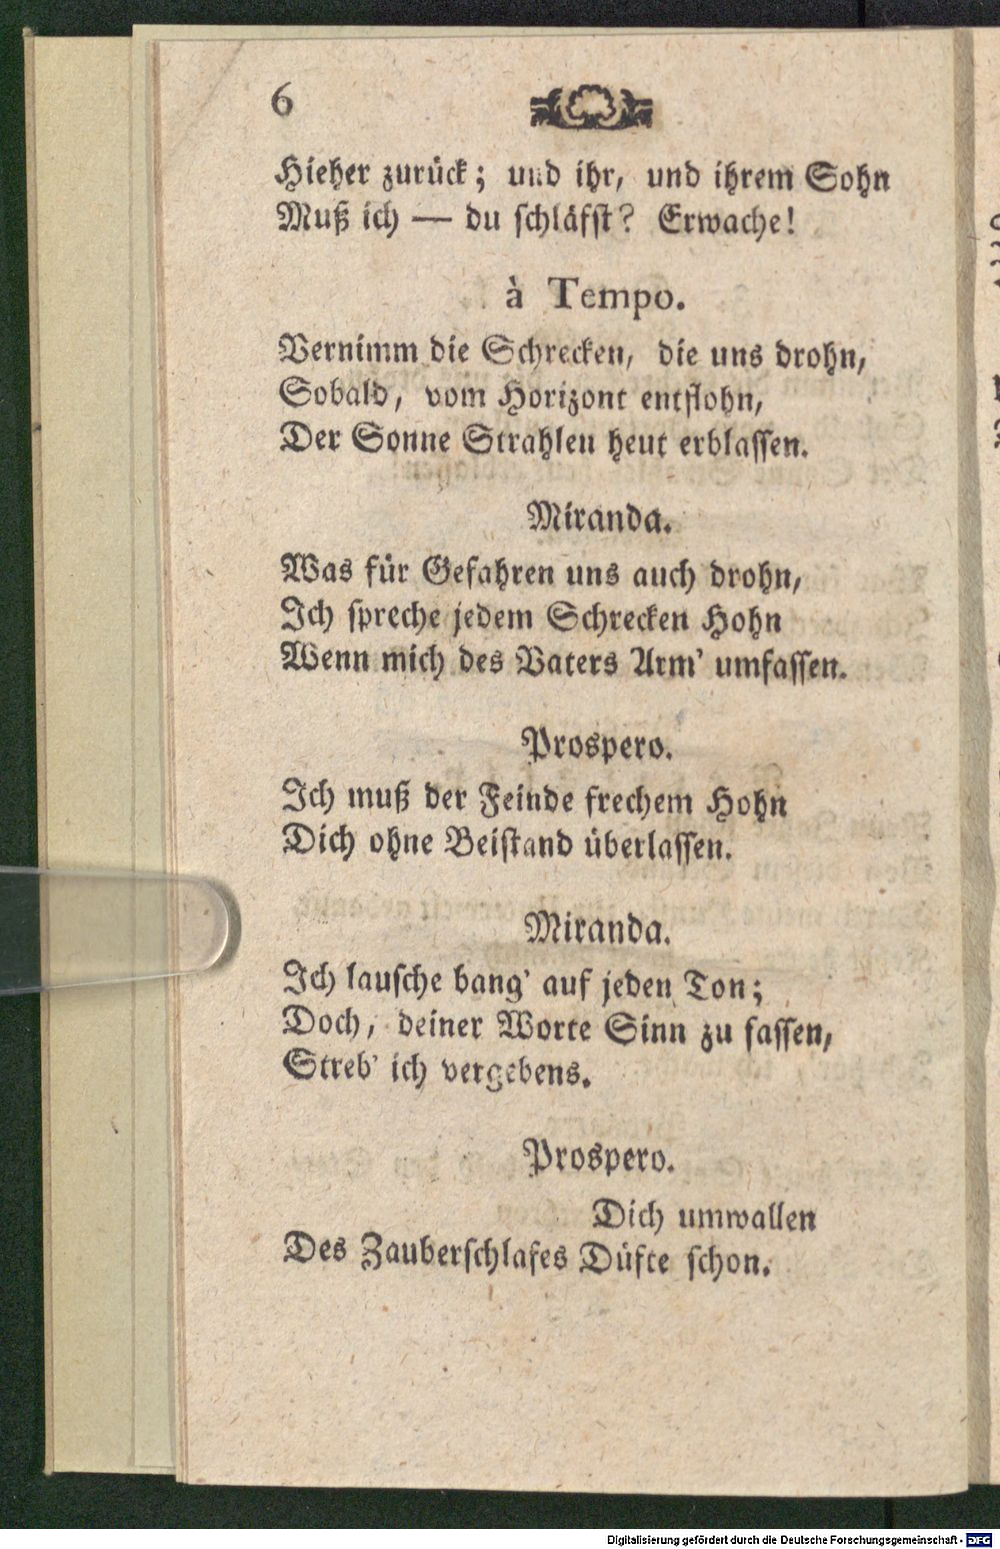 6
Hieher zurück; und ihr, und ihrem Sohn
Muß ich — du schläfst? Erwache!
à Tempo.
Vernimm die Schrecken, die uns drohn,
Sobald, vom Horizont entflohn,
Der Sonne Strahlen heut erblassen.
Miranda.
Was für Gefahren uns auch drohn,
Ich spreche jedem Schrecken Hohn
Wenn mich des Vaters Arm' umfassen.
Prospero.
Ich muß der Feinde frechem Hohn
Dich ohne Beistand überlassen.
Miranda.
Ich lausche bang' auf jeden Ton;
Doch, deiner Worte Sinn zu fassen,
Streb' ich vergebens.
Prospero.
Dich umwallen
Des Zauberschlafes Düfte schon.
Digitalisierung gefördert durch die Deutsche Forschungsgemeinschaft - DFG